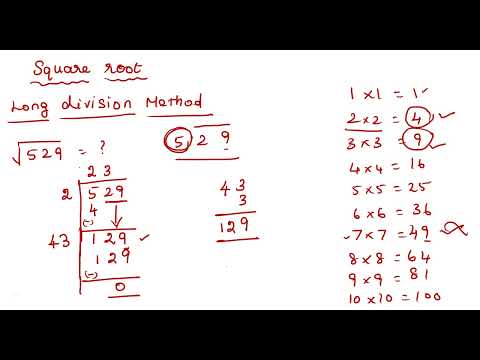 Square root
Long division Method
√529 = ?
5 2 9
2 3
2 5 29
4
(-)
43 1 29
1 29
(-)
0
4 3
3
129
1 × 1 = 1
2 × 2 = 4
3 × 3 = 9
4 × 4 = 16
5 × 5 = 25
6 × 6 = 36
7 × 7 = 49
8 × 8 = 64
9 × 9 = 81
10 × 10 = 100